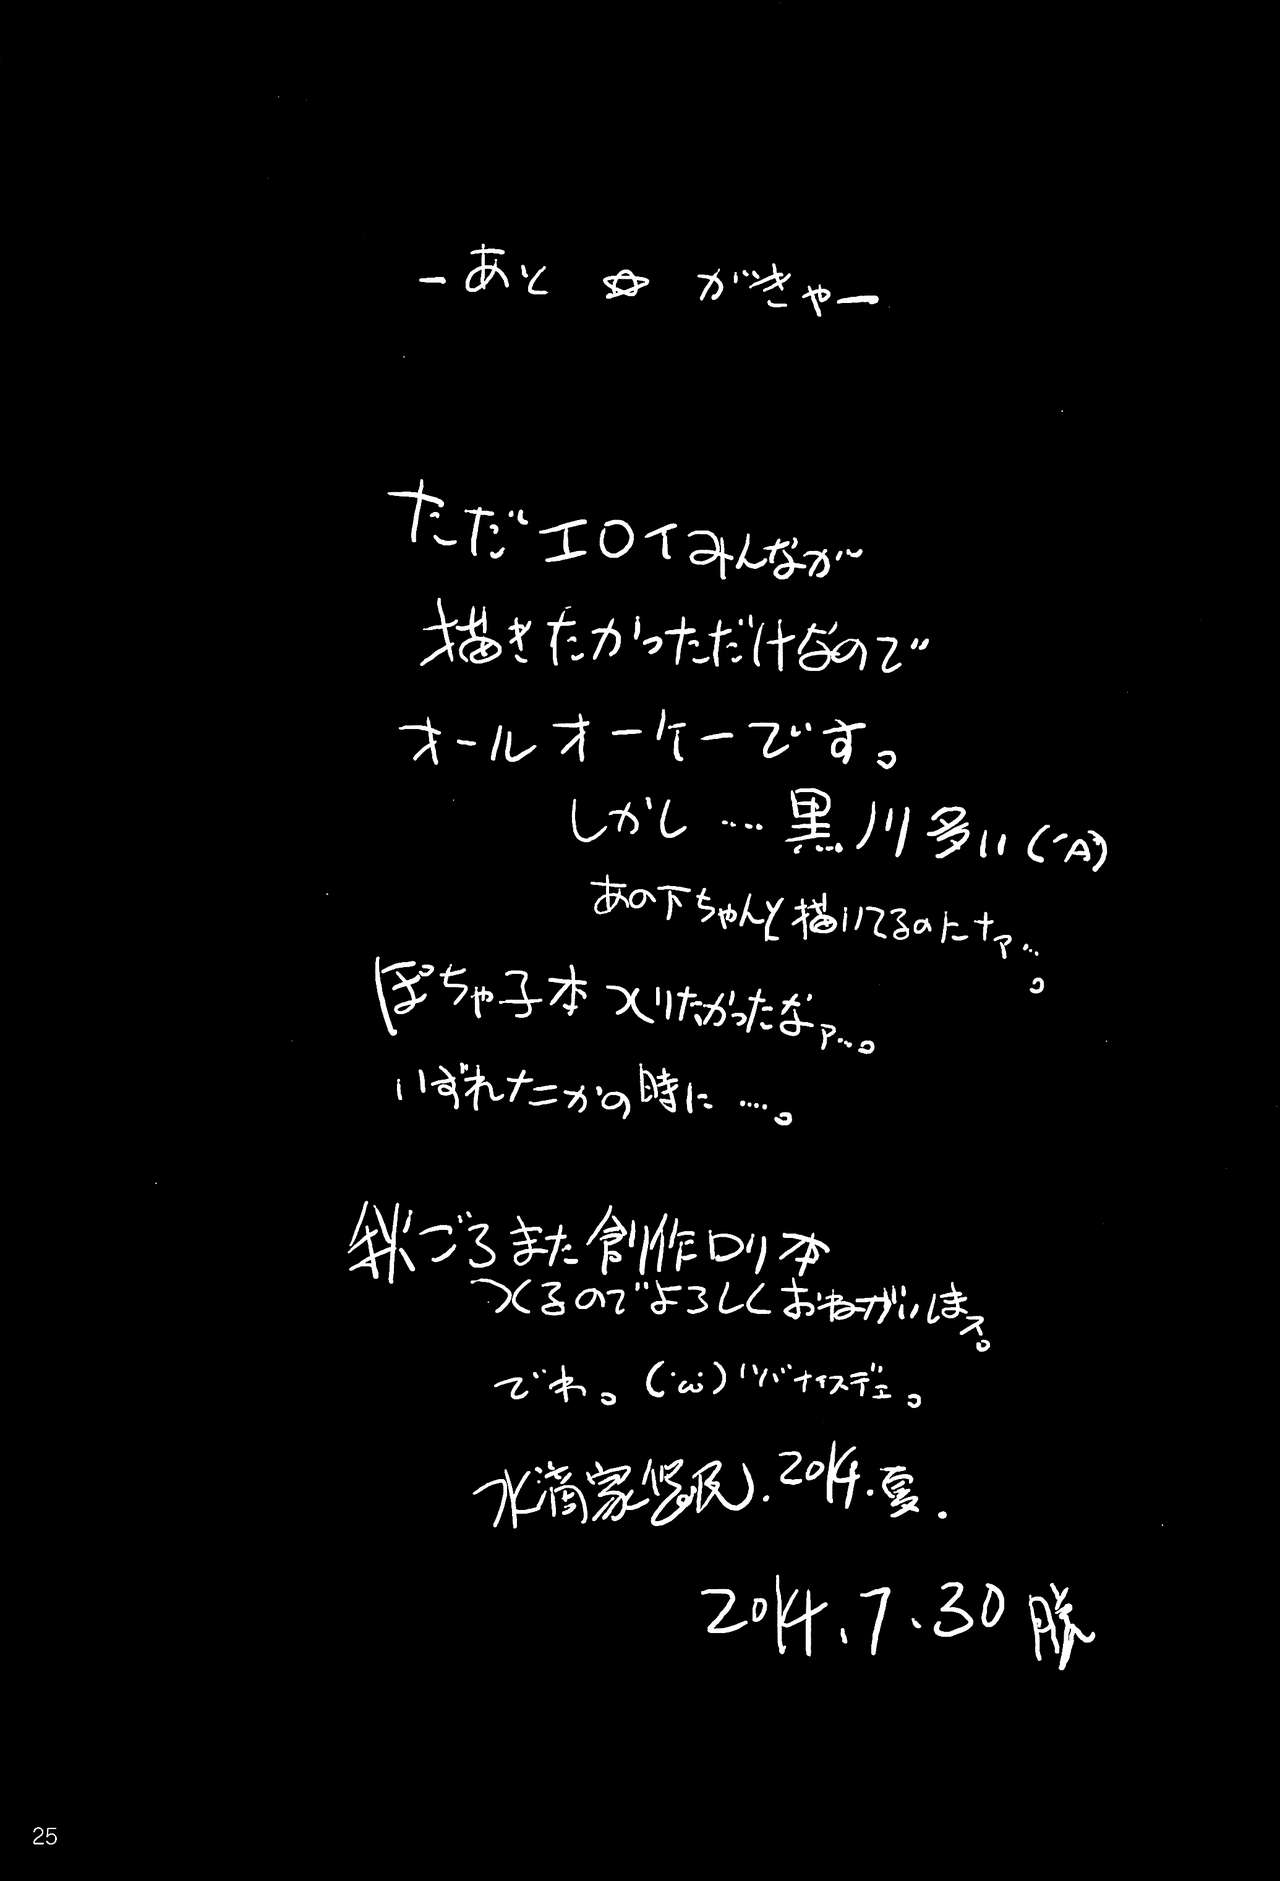 -あと☆がきゃー
ただエロイみんなが
描きたかっただけなので
オールオーケーです。
しかし……黒川多い(´A`)
あの下ちゃんと描いてるのにナァ…。
ぽちゃ子本つくりたかったなァ…。
いずれナニかの時に……。
秋ごろまた創作ロリ本
つくるのでよろしくおねがいしまス。
でわ。(´ω`)
水滴家 2014.夏.
2014.7.30 勝
25